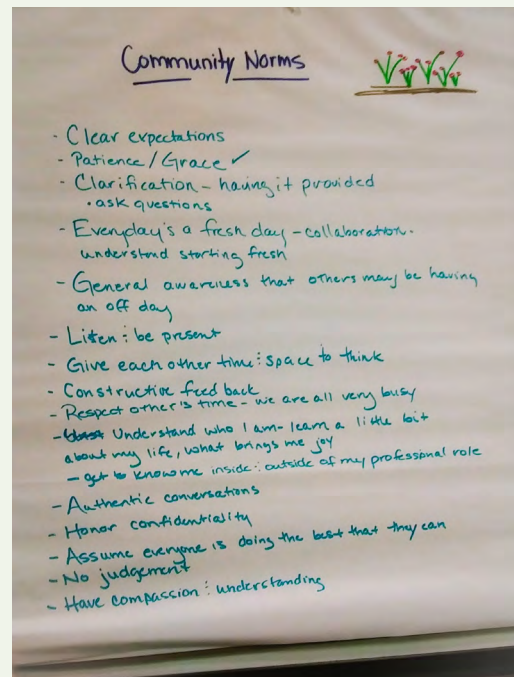 Community Norms
- Clear expectations
- Patience/Grace ✓
- Clarification - having it provided
• ask questions
- Everyday's a fresh day - collaboration.
understand starting fresh
- General awareness that others may be having
an off day
- Listen & be present
- Give each other time & space to think
- Constructive feed back
- Respect other's time - we are all very busy
- Understand who I am - learn a little bit
about my life, what brings me joy
- get to know me inside & outside of my professional role
- Authentic conversations
- Honor confidentiality
- Assume everyone is doing the best that they can
- No judgement
- Have compassion & understanding